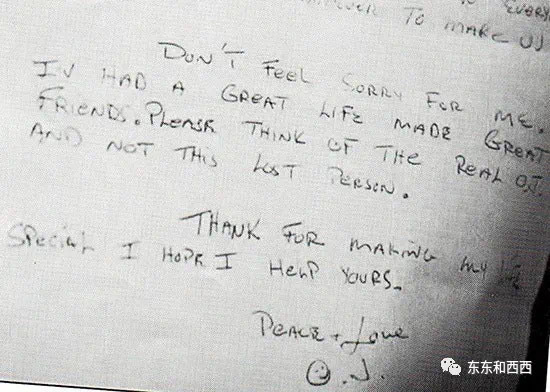 EVERY
TO MAKE US
DON'T FEEL SORRY FOR ME.
IV HAD A GREAT LIFE MADE GREAT
FRIENDS. PLEASE THINK OF THE REAL O.J.
AND NOT THIS LOST PERSON.
THANK FOR MAKING MY LIFE
SPECIAL I HOPE I HELP YOURS.
PEACE + LOVE
O.J.
东东和西西